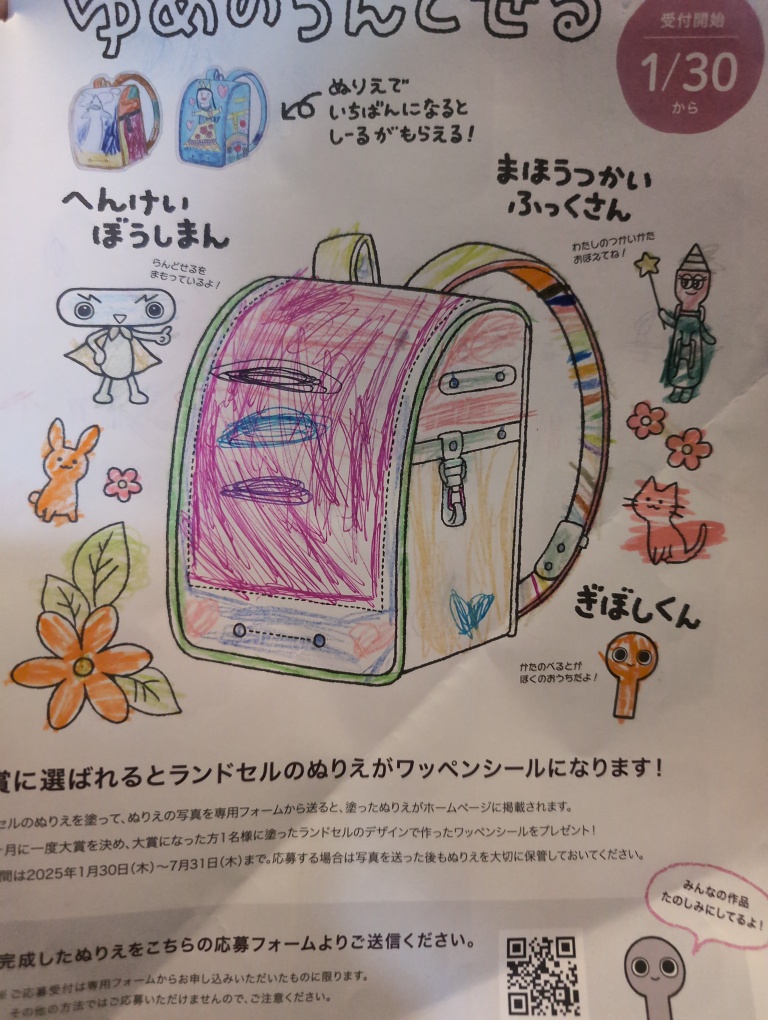 ゆめのらんどせる
受付開始
1/30
から
ぬりえで
いちばんになると
しーるがもらえる!
へんけい
ぼうしまん
らんどせるを
まもっているよ!
まほうつかい
ふっくさん
わたしのつかいかた
おぼえてね!
ぎぼしくん
かたのべるとが
ぼくのおうちだよ!
賞に選ばれるとランドセルのぬりえがワッペンシールになります!
セルのぬりえを塗って、ぬりえの写真を専用フォームから送ると、塗ったぬりえがホームページに掲載されます。
月に一度大賞を決め、大賞になった方1名様に塗ったランドセルのデザインで作ったワッペンシールをプレゼント!
間は2025年1月30日(木)〜7月31日(木)まで。応募する場合は写真を送った後もぬりえを大切に保管しておいてください。
みんなの作品
たのしみにしてるよ!
完成したぬりえをこちらの応募フォームよりご送信ください。
※ご応募受付は専用フォームからお申し込みいただいたものに限ります。
その他の方法ではご応募いただけませんので、ご注意ください。